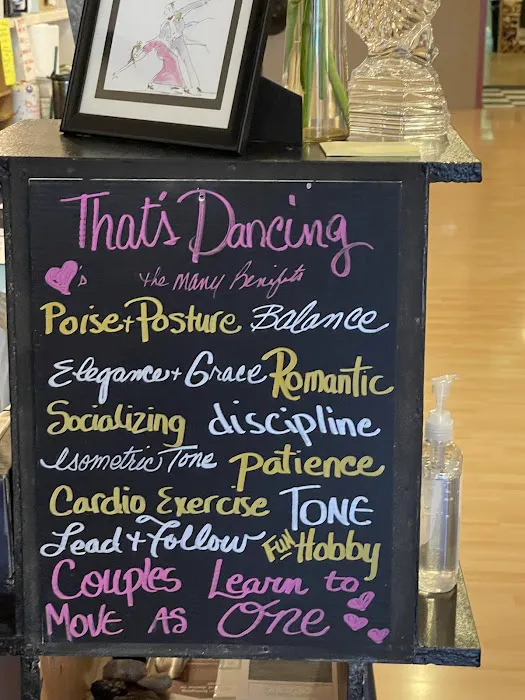 That's Dancing
♥'s the Many Benefits
Poise + Posture Balance
Elegance + Grace Romantic
Socializing discipline
Isometric Tone patience
Cardio Exercise TONE
Lead + Follow Fun Hobby
Couples Learn to
Move As One